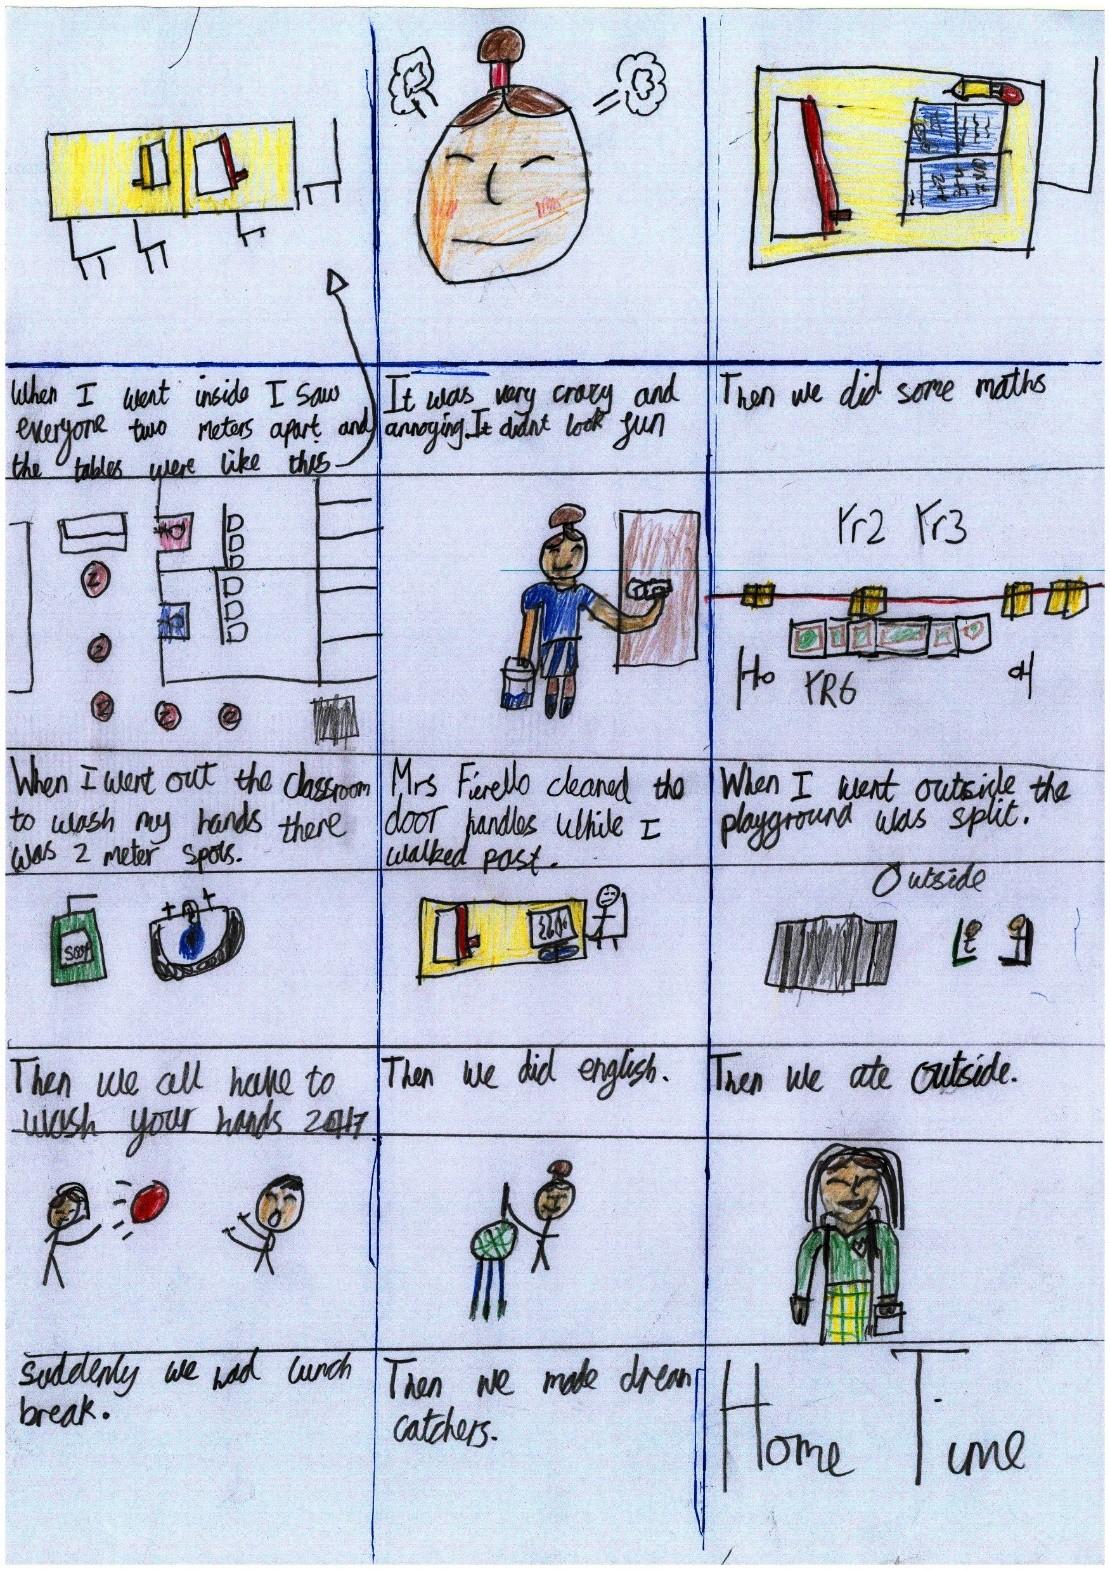 When I went inside I saw
everyone two meters apart and
the tables were like this
It was very crazy and
annoying. It didnt look fun
Then we did some maths
2
2
2
2
2
Yr2 Yr3
YR6
When I went out the classroom
to wash my hands there
was 2 meter spots.
Mrs Fierello cleaned the
door handles while I
walked past.
When I went outside the
playground was split.
soap
Outside
Then we all have to
wash your hands 24/7
Then we did english.
Then we ate outside.
Suddenly we had lunch
break.
Then we made dream
catchers.
Home Time